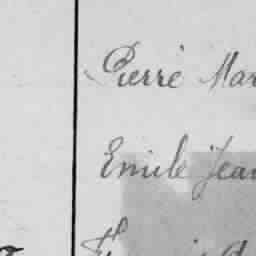 Pierre Mar
Emile Jean